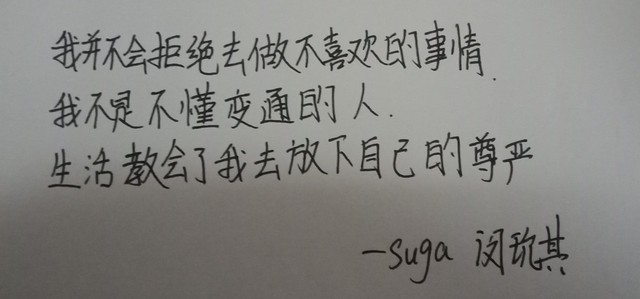 我并不会拒绝去做不喜欢的事情.
我不是不懂变通的人.
生活教会了我去放下自己的尊严
-suga 闵玧其